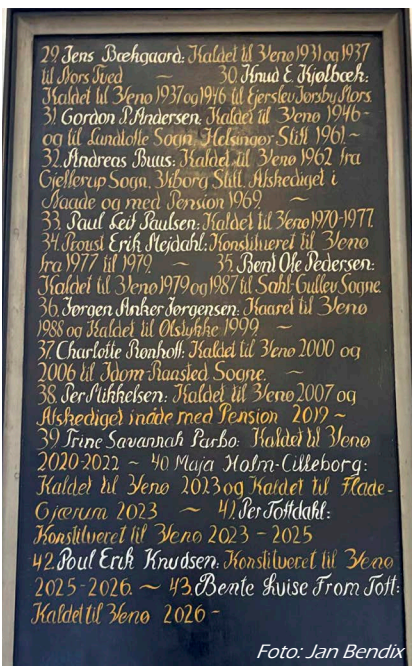 29. Jens Bækgaard: Kaldet til Venø 1931 og 1937
til Mors Tved ~ 30. Knud E. Kjølbæk:
Kaldet til Venø 1937 og 1946 til Ejerslev Jørsby Mors.
31. Gordon P. Andersen: Kaldet til Venø 1946-
og til Lundtofte Sogn, Helsingør Stift 1961. ~
32. Andreas Buus: Kaldet til Venø 1962 fra
Gjellerup Sogn, Viborg Stift. Afskediget i
Naade og med Pension 1969. ~
33. Paul Leif Paulsen: Kaldet til Venø 1970-1977.
34. Provst Erik Mejdahl: Konstitueret til Venø
fra 1977 til 1979. ~ 35. Bent Ole Pedersen:
Kaldet til Venø 1979 og 1987 til Sahl-Gullev Sogne.
36. Jørgen Anker Jørgensen: Kaaret til Venø
1988 og Kaldet til Ølstykke 1999. ~
37. Charlotte Rønhoff: Kaldet til Venø 2000 og
2006 til Idom-Raasted Sogne. ~
38. Per Mikkelsen: Kaldet til Venø 2007 og
Afskediget i nåde med Pension 2019 ~
39. Trine Savannah Parbo: Kaldet til Venø
2020-2022 ~ 40 Maja Holm-Cilleborg:
Kaldet til Venø 2023 og Kaldet til Flade-
Gjærum 2023 ~ 41. Per Toftdahl:
Konstitueret til Venø 2023 - 2025
42. Poul Erik Knudsen: Konstitueret til Venø
2025-2026. ~ 43. Bente Luise From Toft:
Kaldet til Venø 2026 -
Foto: Jan Bendix